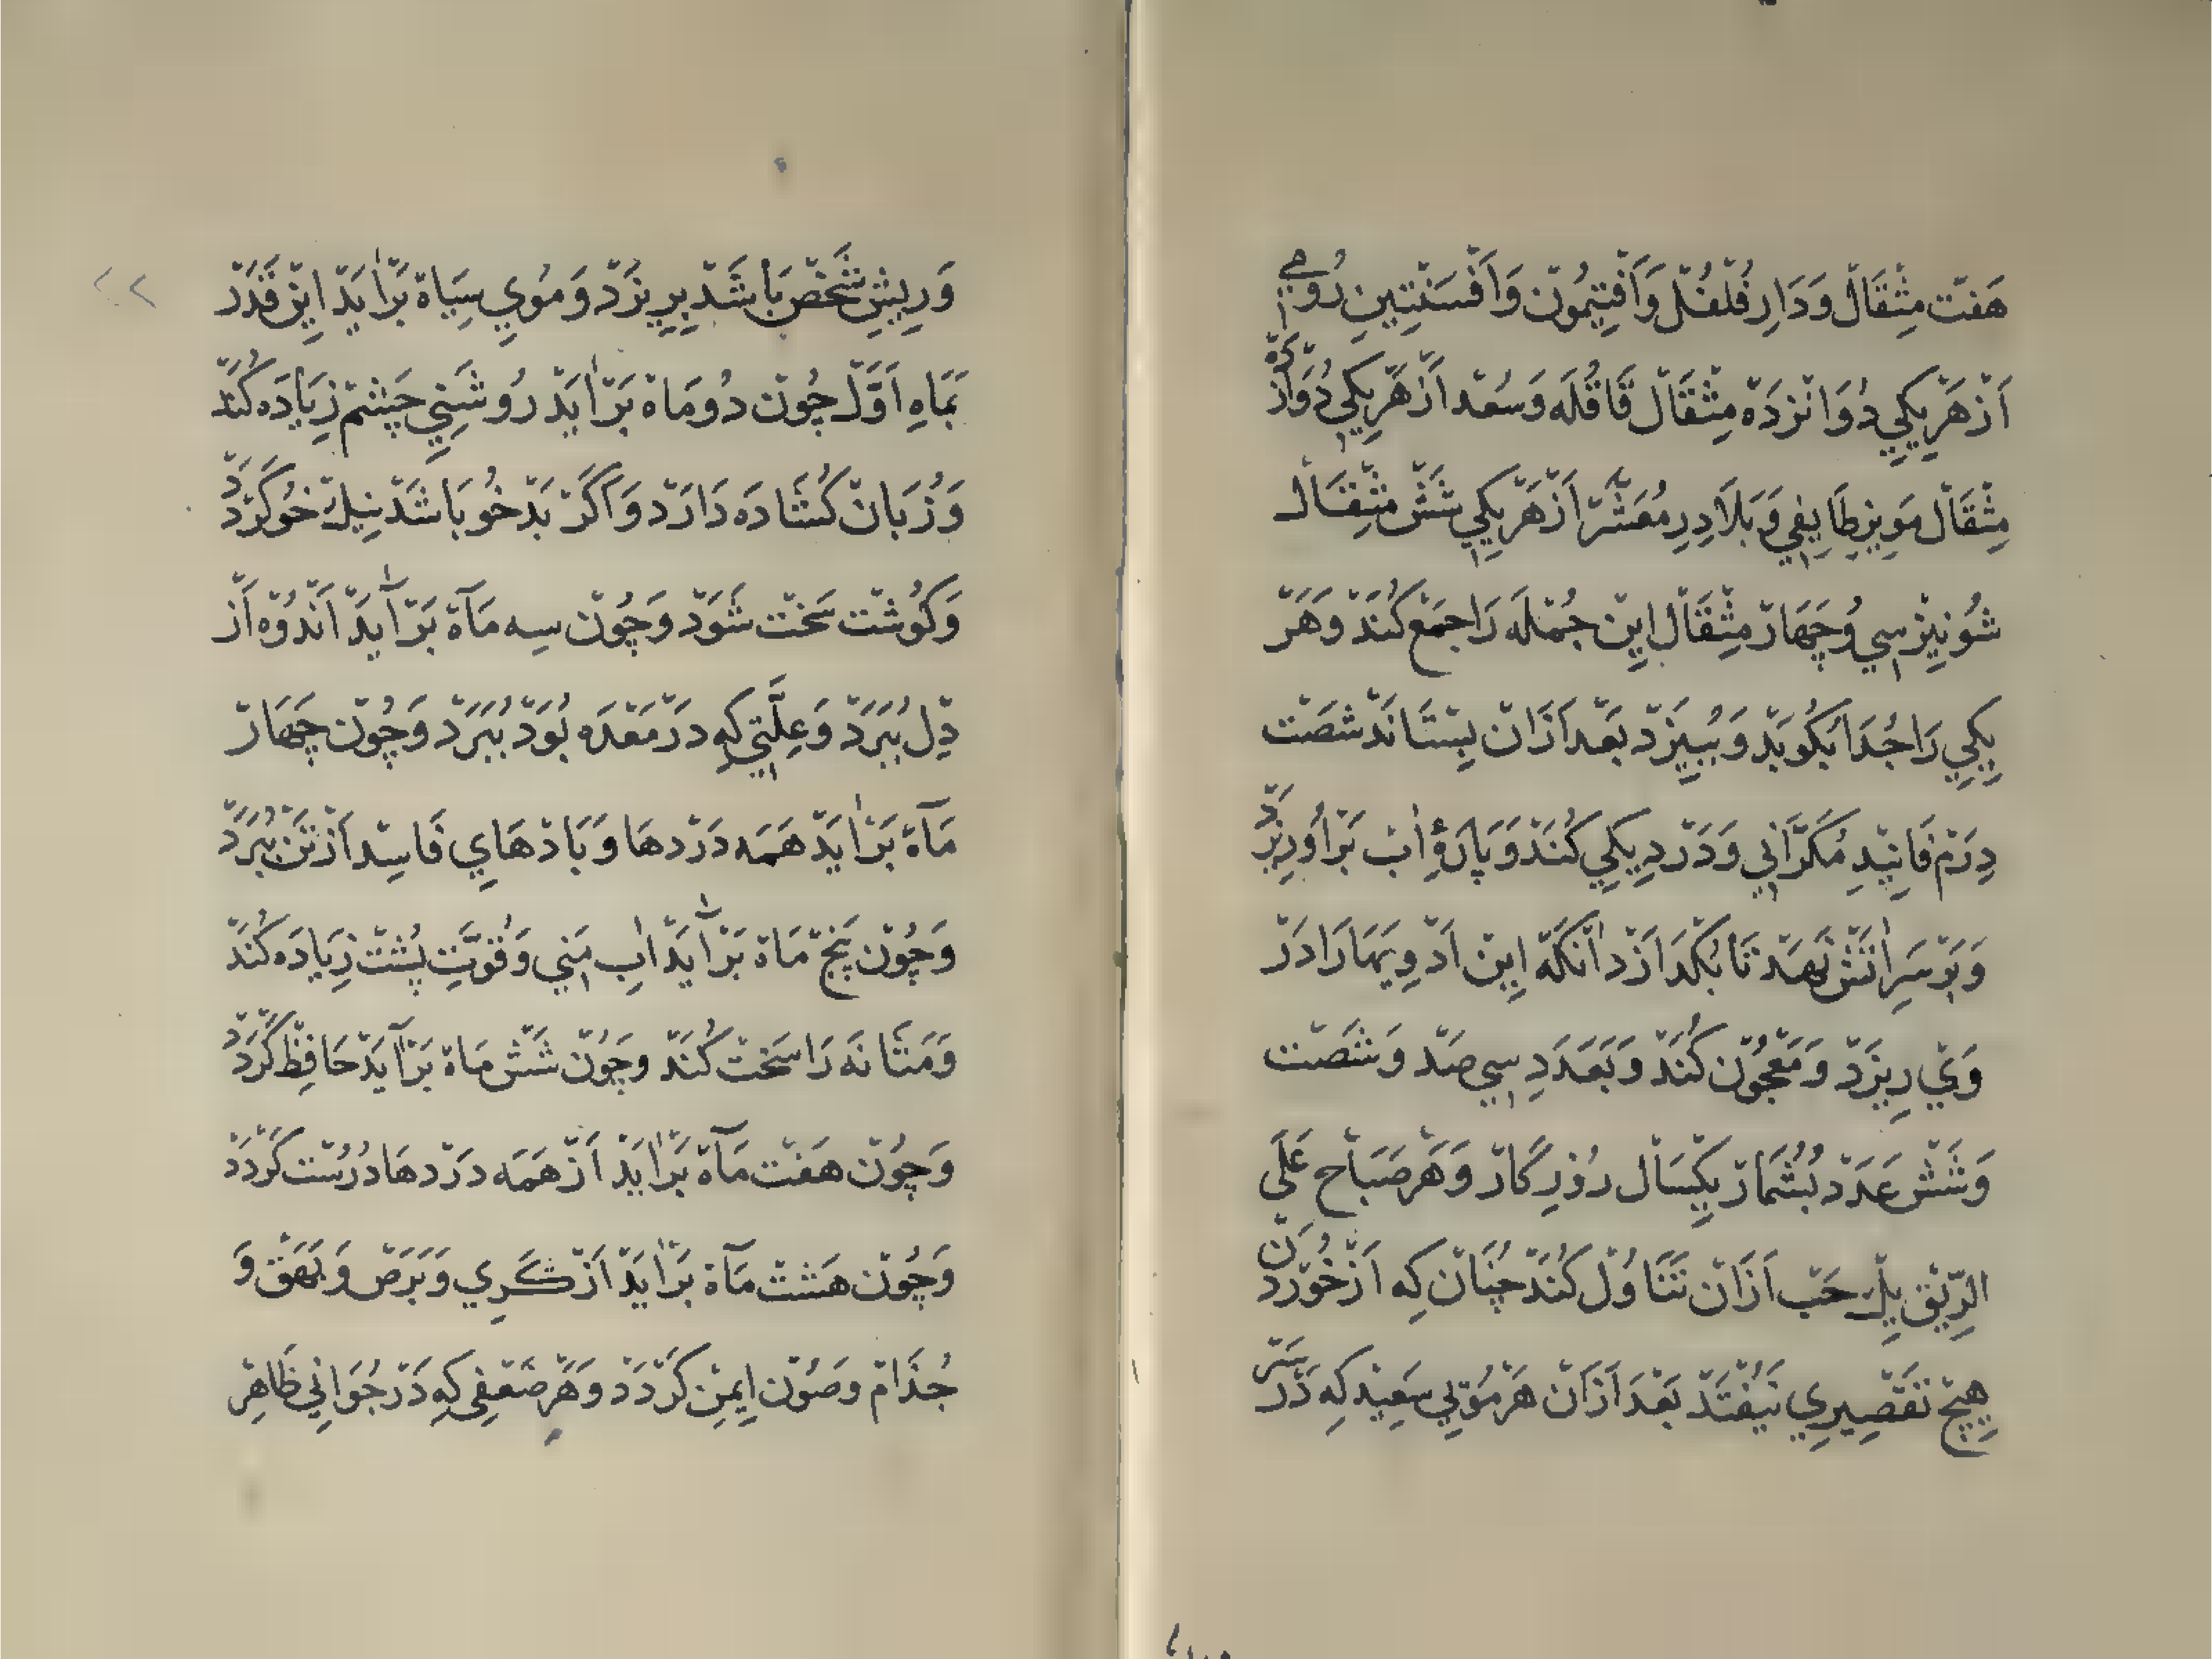 هَفْت مِثْقَالْ وَدَارِ فُلْفُلْ وَاَفْتِيمُوْن وَاَفْسَنْتِينِ رُومِي
اَزْ هَرْ يِكِي دُوَانْزدَهْ مِثْقَالْ قَاقُلَه وَسُعْد اَزْ هَرْ يِكِي دُوَازْدَهْ
مِثْقَالْ مَوِيزِ طَايِفِي وَبَلَادِرِ مُعَشَّرْ اَزْ هَرْ يِكِي شَشْ مِثْقَالْ
شُونِيزْ سِي وُچَهَارْ مِثْقَالْ اِيِنْ جُمْلَه رَا جَمْعْ كُنَدْ وَهَرْ
يِكِي رَا جُدَا بَكُوبَدْ وَبِبِيزَدْ بَعْد اَزَانْ بِسْتَانَدْ شَصْت
دِرَمْ فَانِيْدِ مُكَرَّانِي وَدَرْ دِيكِي كُنَدْ وَپَارَهٔ اٰبْ بَرْ اُو رِيزَدْ
وَبَرْ سَرِ اٰتَشْ نَهَدْ تَا بُكَدَازَدْ اٰنْكَهْ اِيِنْ اَدْوِيَهَا رَا دَرْ
وَيْ رِيزَدْ وَمَعْجُوْن كُنَدْ وَبَعَدَدِ سِي صَدْ وَشَصْت
وَشَشْ عَدَدْ بُشُمَارْ يِكْسَالْ رُوْزِگَارْ وَهَرْ صَبَاحْ عَلَى
الرِّيْقِ يِكْ حَبّ اَزَانْ تَنَاوُلْ كُنَدْ چُنَانْ كِه اَزْ خُوْرْدَنْ
هِيچْ تَقْصِيرِي نَيُفْتَدْ بَعْدَ اَزَانْ هَرْ مُوْيِي سَفِيدْ كِه دَرْ سَرْ
وَرِيشِ شَخْصْ بَاشَدْ بِرِيزَدْ وَمُويِ سِيَاهْ بَرْاٰيَدْ اِيْن قَدَرْ
بَمَاهِ اَوَّلْ چُوْن دُو مَاهْ بَرْاٰيَدْ رُوشَنِيِ چَشْمْ زِيَادَه كُنَدْ
وَزُبَانْ كُشَادَه دَارَدْ وَاَكَرْ بَدْ خُو بَاشَدْ نِيكْ خُو كَرْدَدْ
وَكُوْشْت سَخْت شَوَدْ وَچُوْن سِه مَاهْ بَرْاٰيَدْ اَنْدُوْه اَزْ
دِلْ بُبَرَدْ وَعِلَّتِي كِه دَرْ مَعْدَه بُوَدْ بُبَرَدْ وَچُوْن چَهَارْ
مَاهْ بَرْاٰيَدْ هَمَه دَرْدهَا وَبَادْهَايِ فَاسِد اَزْ تَنْ بُبَرَدْ
وَچُوْن پَنْجْ مَاهْ بَرْاٰيَدْ اٰبِ مَنِي وَقُوَّتِ پُشْتْ زِيَادَه كُنَدْ
وَمَثَانَه رَا سَخْت كُنَدْ وچُوْن شَشْ مَاهْ بَرْاٰيَدْ حَافِظْ گَرْدَدْ
وَچُوْن هَفْت مَاهْ بَرْاٰيَدْ اَزْ هَمَه دَرْدهَا دُرُسْت كَرْدَدْ
وَچُوْن هَشْت مَاهْ بَرْاٰيَدْ اَزْ كَرِي وَبَرَصْ وَبَهَقْ وَ
جُذَامْ وصَوْن اِيمِنْ كَرْدَدْ وَهَرْ ضَعْفِي كِه دَرْ جُوَانِي ظَاهِرْ